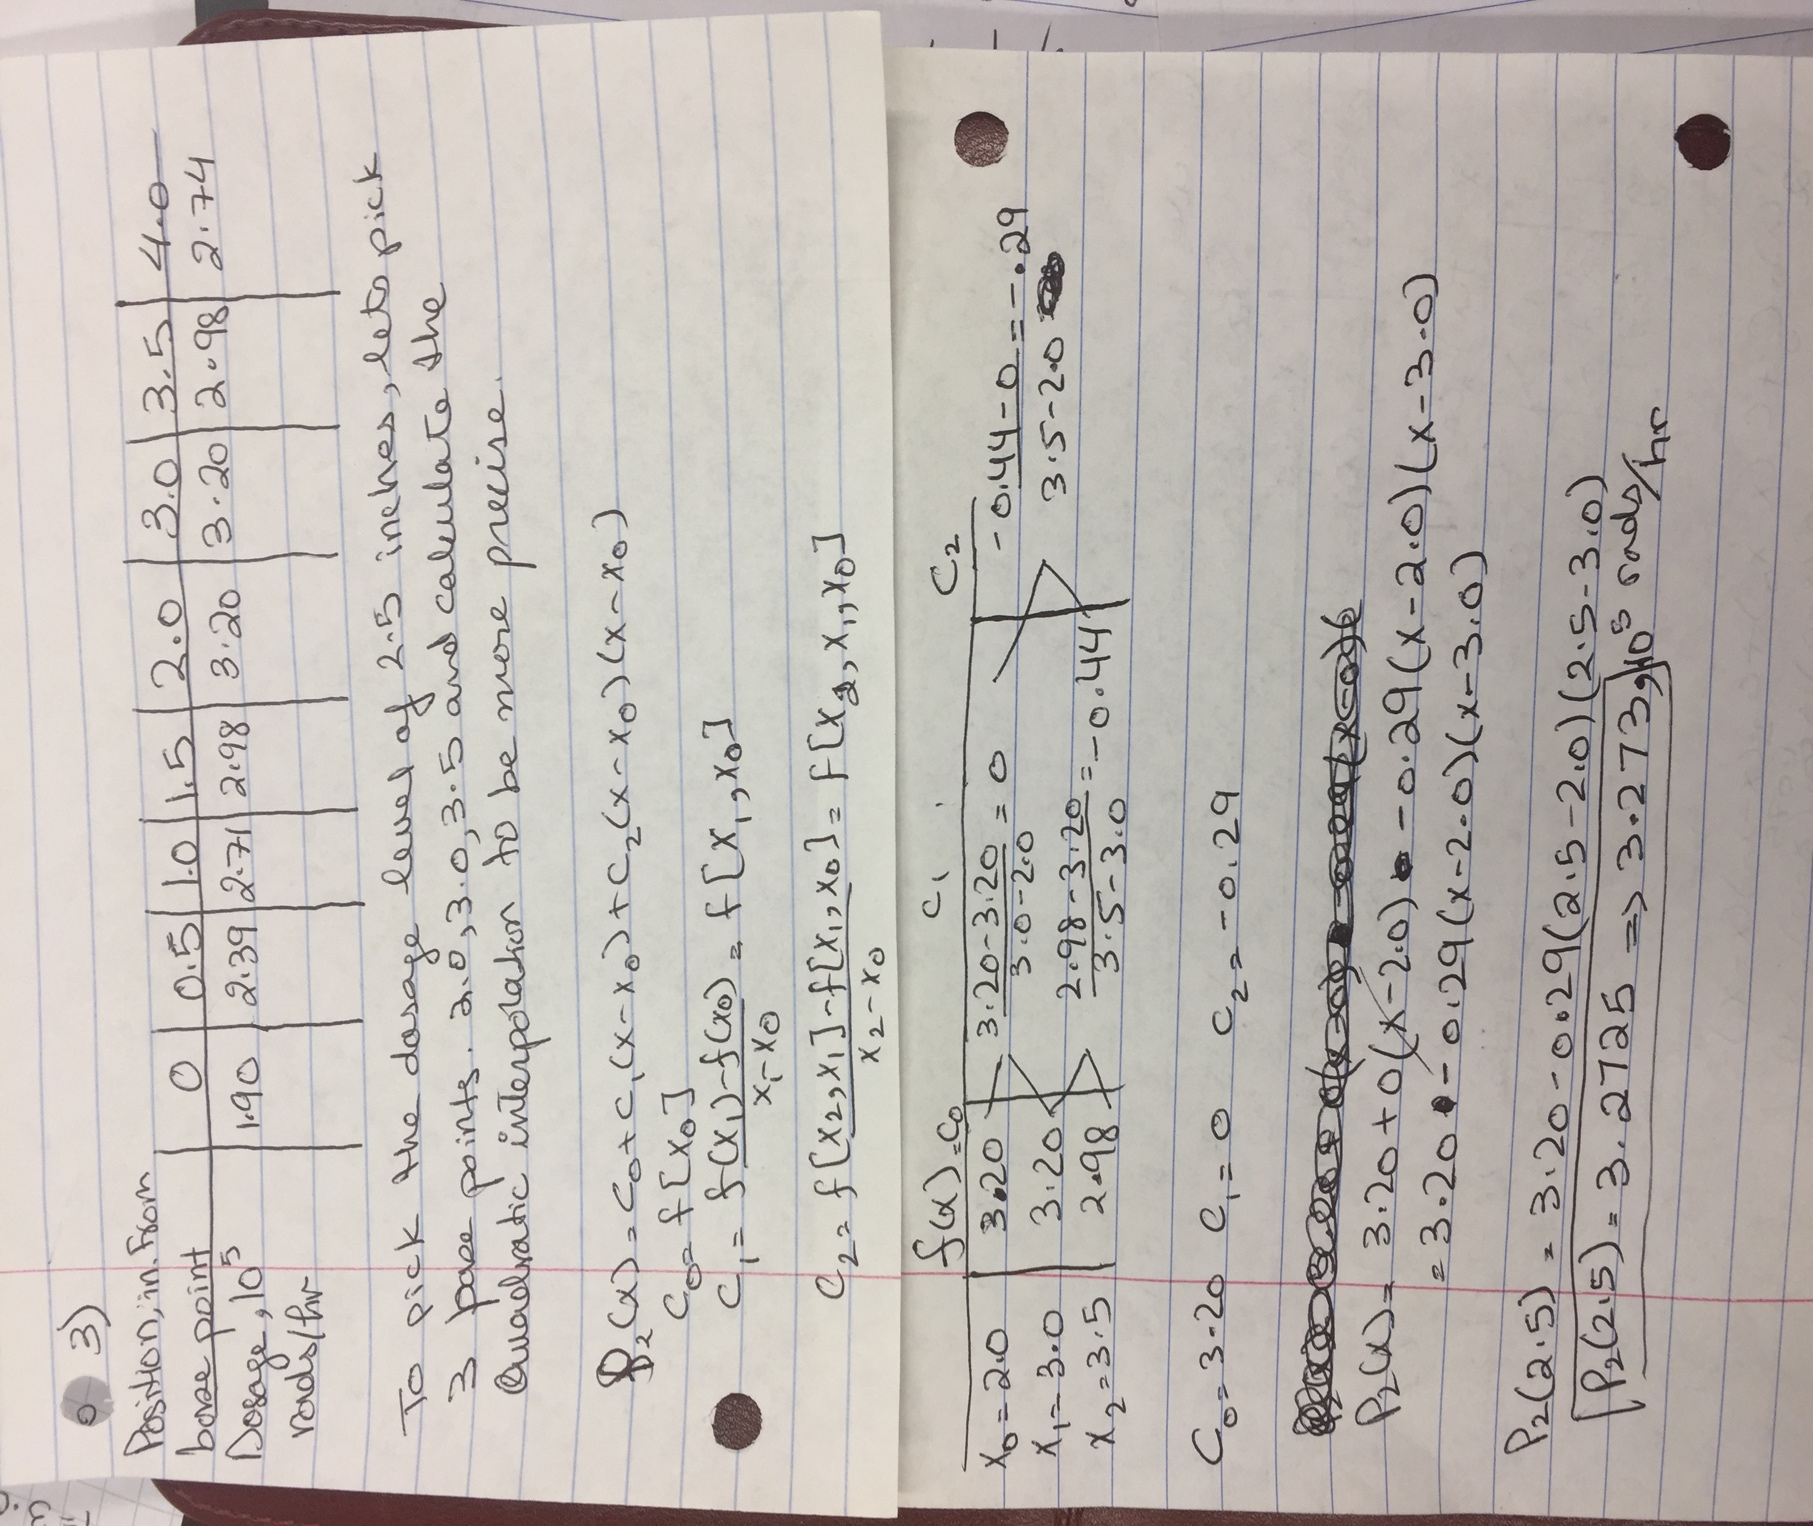 3)
Position, in. from
base point | 0 | 0.5 | 1.0 | 1.5 | 2.0 | 3.0 | 3.5 | 4.0
Dosage, 10⁵ rads/hr | 1.90 | 2.39 | 2.71 | 2.98 | 3.20 | 3.20 | 2.98 | 2.74
To pick the dosage level of 2.5 inches, lets pick
3 base points. 2.0, 3.0, 3.5 and calculate the
Quadratic interpolation to be more precise.
P₂(x) = C₀ + C₁(x-x₀) + C₂(x-x₀)(x-x₀)
C₀ = f[x₀]
C₁ = f(x₁)-f(x₀) / x₁-x₀ = f[x₁, x₀]
C₂ = f[x₂, x₁]-f[x₁, x₀] / x₂-x₀ = f[x₂, x₁, x₀]
f(x)=C₀ C₁ C₂
x₀=2.0 | 3.20 | 3.20-3.20 / 3.0-2.0 = 0 | -0.44-0 / 3.5-2.0 = -.29
x₁=3.0 | 3.20
x₂=3.5 | 2.98 | 2.98-3.20 / 3.5-3.0 = -0.44
C₀=3.20 C₁=0 C₂=-0.29
P₂(x) = 3.20+0(x-2.0) -0.29(x-2.0)(x-3.0)
= 3.20 -0.29(x-2.0)(x-3.0)
P₂(2.5) = 3.20-0.29(2.5-2.0)(2.5-3.0)
P₂(2.5) = 3.2725 => 3.273, 10⁵ rads/hr